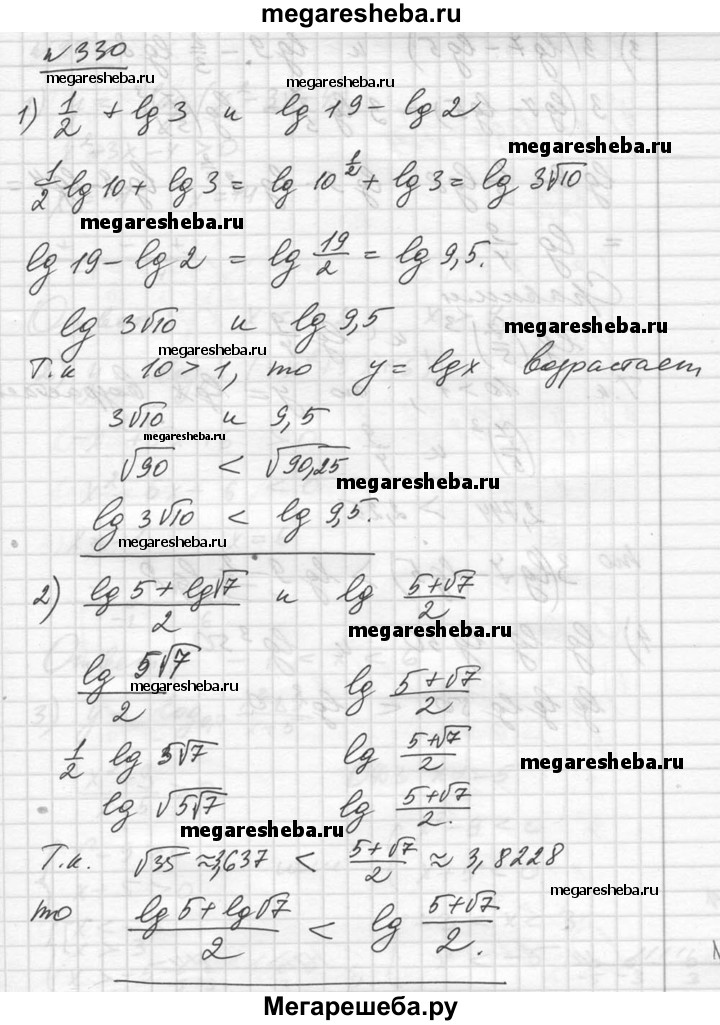 megaresheba.ru
№330
megaresheba.ru
megaresheba.ru
1) 1/2 + lg 3 и lg 19 - lg 2
megaresheba.ru
1/2 lg 10 + lg 3 = lg 10^(1/2) + lg 3 = lg 3√10
megaresheba.ru
lg 19 - lg 2 = lg 19/2 = lg 9,5.
lg 3√10 и lg 9,5
megaresheba.ru
megaresheba.ru
Т.к 10 > 1, то y = lgx возрастает
3√10 и 9,5
megaresheba.ru
√90 < √90,25
megaresheba.ru
lg 3√10 < lg 9,5.
megaresheba.ru
2) (lg 5 + lg√7)/2 и lg (5+√7)/2
megaresheba.ru
(lg 5√7)/2 lg (5+√7)/2
megaresheba.ru
1/2 lg 5√7 lg (5+√7)/2
megaresheba.ru
lg √(5√7) lg (5+√7)/2.
megaresheba.ru
Т.к. √35 ≈3,637 < (5+√7)/2 ≈ 3,8228
megaresheba.ru
то (lg 5 + lg√7)/2 < lg (5+√7)/2.
Мегарешеба.ру